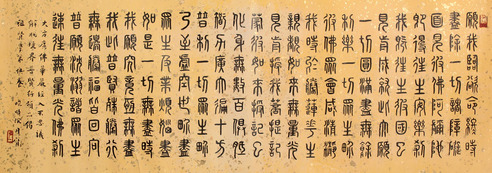 願我臨欲命終時
盡除一切諸障礙
面見彼佛阿彌陀
即得往生安樂剎
我既往生彼國已
現前成就此大願
一切圓滿盡無餘
利樂一切眾生界
彼佛眾會咸清淨
我時於勝蓮華生
親睹如來無量光
現前授我菩提記
蒙彼如來授記已
化身無數百俱胝
智力廣大遍十方
普利一切眾生界
乃至虛空世界盡
眾生及業煩惱盡
如是一切無盡時
我願究竟恆無盡
我此普賢殊勝行
無邊勝福皆回向
普願沉溺諸眾生
速往無量光佛剎
大方廣佛華嚴經入不思議
解脫境界普賢行願品偈